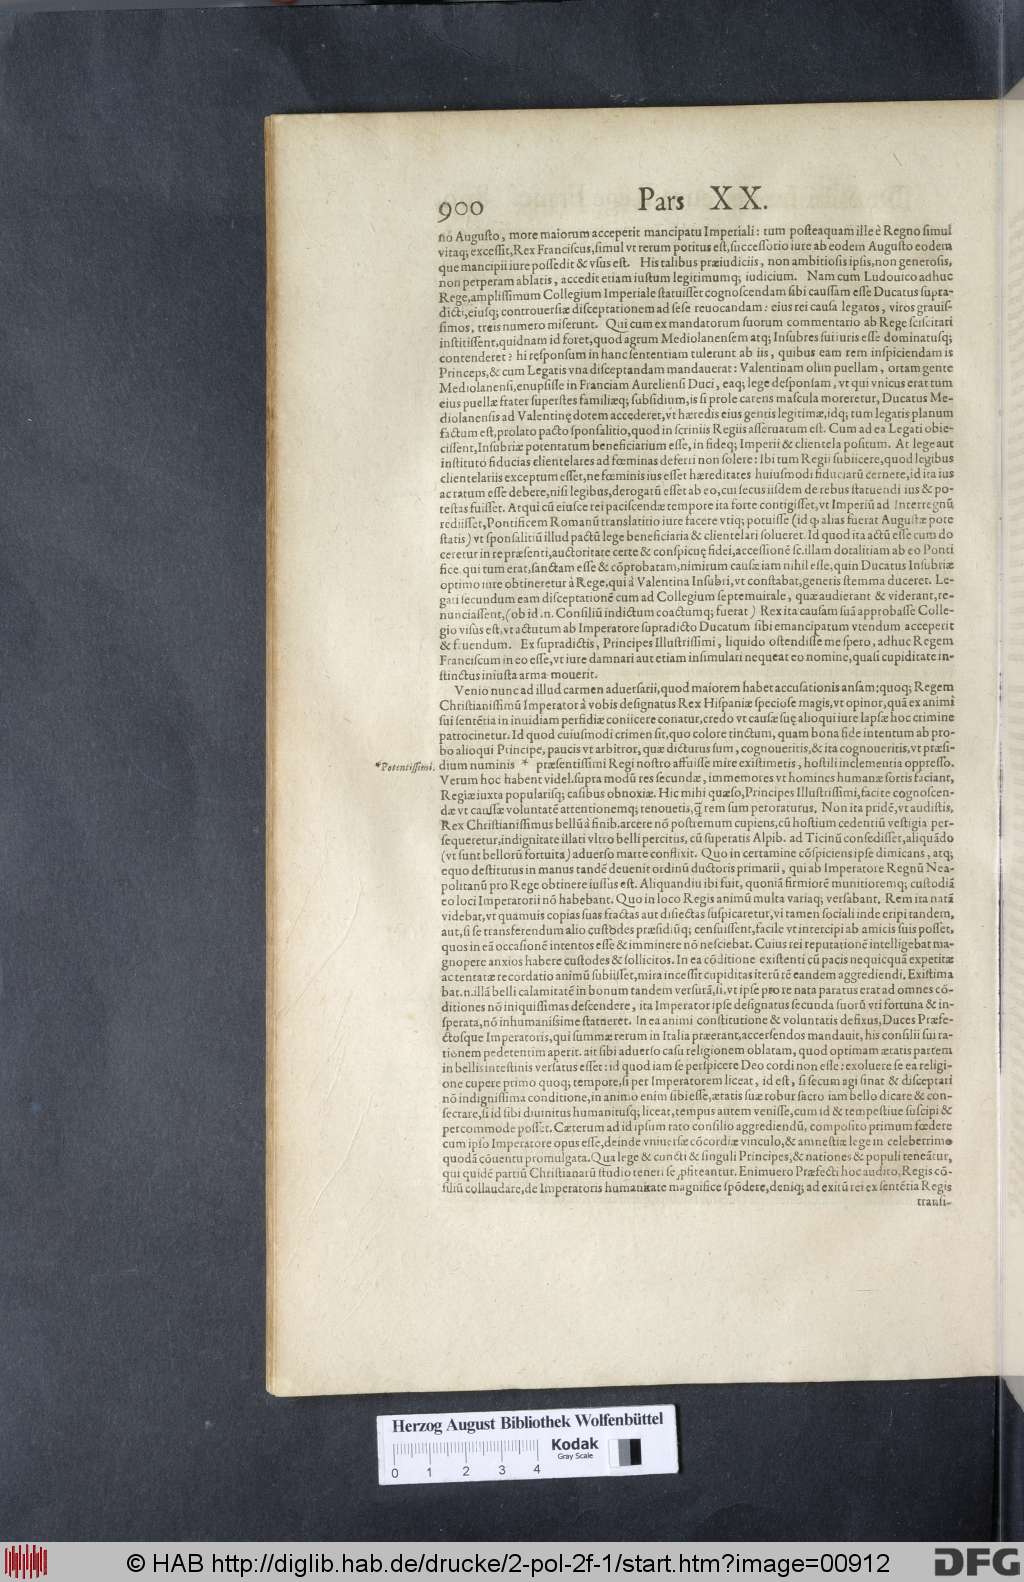 900
Pars XX.
nō Augusto, more maiorum acceperit mancipatu Imperiali: tum posteaquam ille è Regno simul
vitaq; excessit, Rex Franciscus, simul vt rerum potitus est, successorio iure ab eodem Augusto eodem
que mancipii iure possedit & vsus est. His talibus præiudiciis, non ambitiosis ipsis, non generosis,
non perperam ablatis, accedit etiam iustum legitimumq; iudicium. Nam cum Ludouico adhuc
Rege, amplissimum Collegium Imperiale statuisset cognoscendam sibi caussam esse Ducatus supra-
dicti, eiusq; controuersiæ disceptationem ad sese reuocandam: eius rei causa legatos, viros grauis-
simos, treis numero miserunt. Qui cum ex mandatorum suorum commentario ab Rege sciscitari
institissent, quidnam id foret, quod agrum Mediolanensem atq; Insubres sui iuris esse dominatusq;
contenderet? hi responsum in hanc sententiam tulerunt ab iis, quibus eam rem inspiciendam is
Princeps, & cum Legatis vna disceptandam mandauerat: Valentinam olim puellam, ortam gente
Mediolanensi, enupsisse in Franciam Aureliensi Duci, eaq; lege desponsam, vt qui vnicus erat tum
eius puellæ frater superstes familiæq; subsidium, is si prole carens mascula moreretur, Ducatus Me-
diolanensis ad Valentinę dotem accederet, vt hæredis eius gentis legitimæ, idq; tum legatis planum
factum est, prolato pacto sponsalitio, quod in scriniis Regiis asseruatum est. Cum ad ea Legati obie-
cissent, Insubriæ potentatum beneficiarium esse, in fideq; Imperii & clientela positum. At lege aut
instituto fiducias clientelares ad fœminas deferri non solere: Ibi tum Regii subiicere, quod legibus
clientelariis exceptum esset, ne fœminis ius esset hæreditates huiusmodi fiduciarū cernere, id ita ius
ac ratum esse debere, nisi legibus, derogatū esset ab eo, cui secus iisdem de rebus statuendi ius & po-
testas fuisset. Atqui cū eiusce rei paciscendæ tempore ita forte contigisset, vt Imperiū ad Interregnū
rediisset, Pontificem Romanū translatitio iure facere vtiq; potuisse (id ꝙ alias fuerat Augustæ pote
statis) vt sponsalitiū illud pactū lege beneficiaria & clientelari solueret. Id quod ita actū esse cum do
ceretur in re præsenti, auctoritate certe & conspicuę fidei, accessionē sc. illam dotalitiam ab eo Ponti
fice qui tum erat, sanctam esse & cōprobatam, nimirum causæ iam nihil esse, quin Ducatus Insubriæ
optimo iure obtineretur à Rege, qui à Valentina Insubri, vt constabat, generis stemma duceret. Le-
gati secundum eam disceptationē cum ad Collegium septemuirale, quæ audierant & viderant, re-
nunciassent, (ob id .n. Consiliū indictum coactumq; fuerat) Rex ita causam suā approbasse Colle-
gio visus est, vt actutum ab Imperatore supradicto Ducatum sibi emancipatum vtendum acceperit
& fruendum. Ex supradictis, Principes Illustrissimi, liquido ostendisse me spero, adhuc Regem
Franciscum in eo esse, vt iure damnari aut etiam insimulari nequeat eo nomine, quasi cupiditate in-
stinctus iniusta arma mouerit.
Venio nunc ad illud carmen aduersarii, quod maiorem habet accusationis ansam: quoq; Regem
Christianissimū Imperator à vobis designatus Rex Hispaniæ speciose magis, vt opinor, quā ex animi
sui sentētia in inuidiam perfidiæ coniicere conatur, credo vt causæ suę alioqui iure lapsæ hoc crimine
patrocinetur. Id quod cuiusmodi crimen sit, quo colore tinctum, quam bona fide intentum ab pro-
bo alioqui Principe, paucis vt arbitror, quæ dicturus sum, cognoueritis, & ita cognoueritis, vt præsi-
*Potentissimi.
dium numinis * præsentissimi Regi nostro affuisse mire existimetis, hostili inclementia oppresso.
Verum hoc habent videl. supra modū res secundæ, immemores vt homines humanæ sortis faciant,
Regiæ iuxta popularisq; casibus obnoxiæ. Hic mihi quæso, Principes Illustrissimi, facite cognoscen-
dæ vt caussæ voluntatē attentionemq; renouetis, q̄ rem sum peroraturus. Non ita pridē, vt audistis,
Rex Christianissimus bellū à finib. arcere nō postremum cupiens, cū hostium cedentiū vestigia per-
sequeretur, indignitate illati vltro belli percitus, cū superatis Alpib. ad Ticinū consedisset, aliquādo
(vt sunt bellorū fortuita) aduerso marte conflixit. Quo in certamine cōspiciens ipse dimicans, atq;
equo destitutus in manus tandē deuenit ordinū ductoris primarii, qui ab Imperatore Regnū Nea-
politanū pro Rege obtinere iussus est. Aliquandiu ibi fuit, quoniā firmiorē munitioremq; custodiā
eo loci Imperatorii nō habebant. Quo in loco Regis animū multa variaq; versabant. Rem ita natā
videbat, vt quamuis copias suas fractas aut disiectas suspicaretur, vi tamen sociali inde eripi tandem,
aut, si se transferendum alio custodes præsidiūq; censuissent, facile vt intercipi ab amicis suis posset,
quos in eā occasionē intentos esse & imminere nō nesciebat. Cuius rei reputationē intelligebat ma-
gnopere anxios habere custodes & sollicitos. In ea cōditione existenti cū pacis nequicquā expetitæ
ac tentatæ recordatio animū subiisset, mira incessit cupiditas iterū rē eandem aggrediendi. Existima
bat .n. illā belli calamitatē in bonum tandem versurā, si, vt ipse pro re nata paratus erat ad omnes cō-
ditiones nō iniquissimas descendere, ita Imperator ipse designatus secunda suorū vti fortuna & in-
sperata, nō inhumanissime statueret. In ea animi constitutione & voluntatis defixus, Duces Præfe-
ctosque Imperatoris, qui summæ rerum in Italia præerant, accersendos mandauit, his consilii sui ra-
tionem pedetentim aperit. ait sibi aduerso casu religionem oblatam, quod optimam ætatis partem
in bellis intestinis versatus esset: id quod iam se perspicere Deo cordi non esse: exoluere se ea religi-
one cupere primo quoq; tempore, si per Imperatorem liceat, id est, si secum agi sinat & disceptari
nō indignissima conditione, in animo enim sibi esse, ætatis suæ robur sacro iam bello dicare & con-
secrare, si id sibi diuinitus humanitusq; liceat, tempus autem venisse, cum id & tempestiue suscipi &
percommode posset. Cæterum ad id ipsum rato consilio aggrediendū, composito primum fœdere
cum ipso Imperatore opus esse, deinde vniuersæ cōcordiæ vinculo, & amnestiæ lege in celeberrimo
quodā cōuentu promulgata. Qua lege & cuncti & singuli Principes, & nationes & populi teneātur,
qui quidē partiū Christianarū studio teneri se ꝓfiteantur. Enimuero Præfecti hoc audito, Regis cō-
siliū collaudare, de Imperatoris humanitate magnifice spōdere, deniq; ad exitū rei ex sentētia Regis
transi-
Herzog August Bibliothek Wolfenbüttel
Kodak
Gray Scale
0 1 2 3 4
© HAB http://diglib.hab.de/drucke/2-pol-2f-1/start.htm?image=00912
DFG